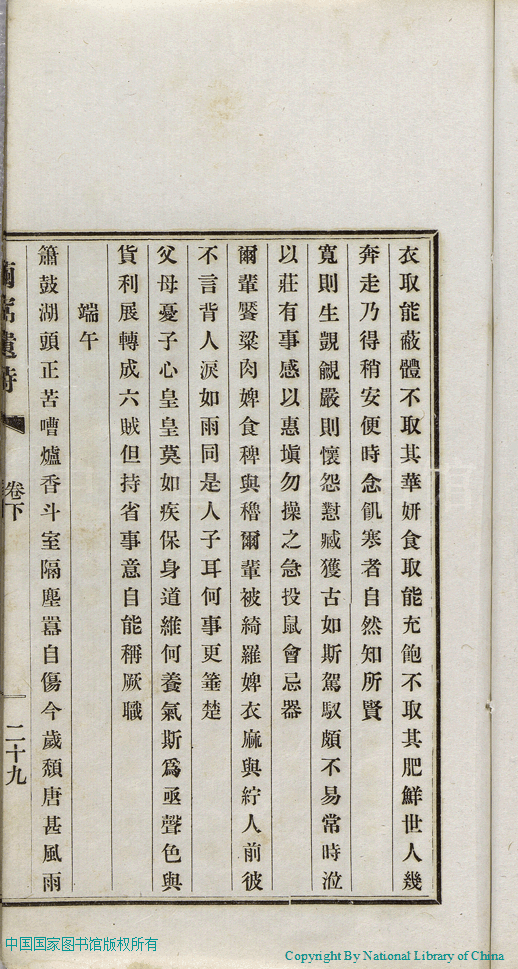 衣取能蔽體不取其華妍食取能充飽不取其肥鮮世人幾
奔走乃得稍安便時念飢寒者自然知所賢
寬則生覬覦嚴則懷怨懟臧獲古如斯駕馭頗不易常時涖
以莊有事感以惠塡勿操之急投鼠會忌器
爾輩饜粱肉婢食稗與穭爾輩被綺羅婢衣麻與紵人前彼
不言背人淚如雨同是人子耳何事更箠楚
父母憂子心皇皇莫如疾保身道維何養氣斯爲亟聲色與
貨利展轉成六賊但持省事意自能稱厥職
端午
簫鼓湖頭正苦嘈爐香斗室隔塵囂自傷今歲頹唐甚風雨
遺詩
卷下
二十九
中国国家图书馆版权所有
Copyright By National Library of China